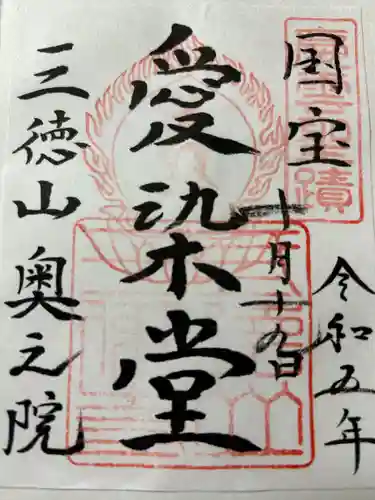 国宝
令和五年
十月十九日
愛染堂
三徳山
奥之院